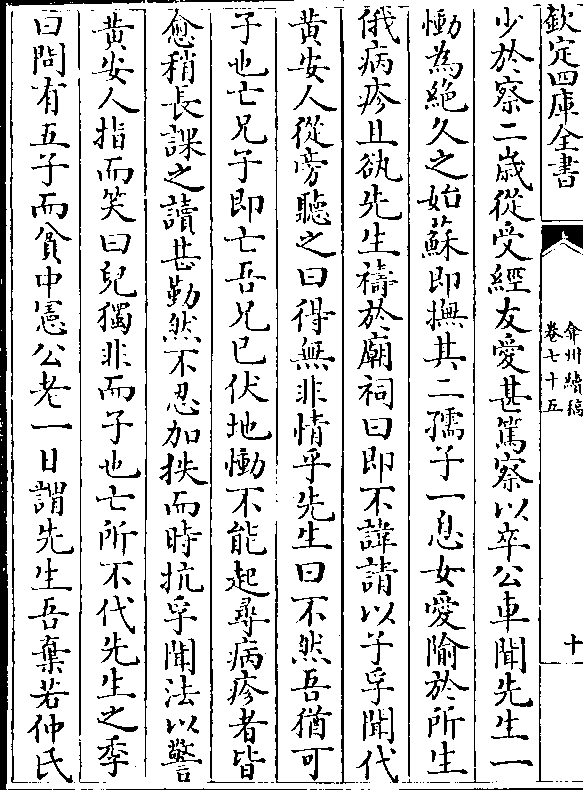 欽定四庫全書
弇州續稿
卷七十五
十
少於察二歳從受經友愛甚篤察以卒公車聞先生一
慟為絶久之始蘇即撫其二孺子一息女愛隃於所生
俄病疹且欬先生禱於廟祠曰即不諱請以子孚聞代
黄安人從旁聽之曰得無非情乎先生曰不然吾猶可
子也亡兄子即亡吾兄已伏地慟不能起尋病疹者皆
愈稍長課之讀甚勤然不忍加抶而時抗孚聞法以警
黄安人指而笑曰兒獨非而子也亡所不代先生之季
曰問有五子而貧中憲公老一日謂先生吾棄若仲氏